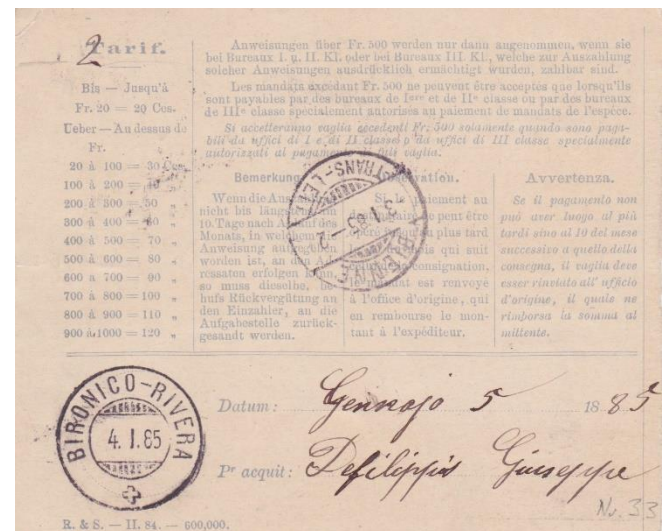 2
Tarif.
Bis — Jusqu'à
Fr. 20 = 20 Cts.
Ueber — Au dessus de
Fr.
20 à 100 = 30 Cts.
100 à 200 = 40 „
200 à 300 = 50 „
300 à 400 = 60 „
400 à 500 = 70 „
500 à 600 = 80 „
600 à 700 = 90 „
700 à 800 = 100 „
800 à 900 = 110 „
900 à 1000 = 120 „
Anweisungen über Fr. 500 werden nur dann angenommen, wenn sie
bei Bureaux I. u. II. Kl. oder bei Bureaux III. Kl., welche zur Auszahlung
solcher Anweisungen ausdrücklich ermächtigt wurden, zahlbar sind.
Les mandats excédant Fr. 500 ne peuvent être acceptés que lorsqu'ils
sont payables par des bureaux de Ière et de IIe classe ou par des bureaux
de IIIe classe spécialement autorisés au paiement de mandats de l'espèce.
Si accetteranno vaglia eccedenti Fr. 500 solamente quando sono paga-
bili da uffici di I e di II classe o da uffici di III classe specialmente
autorizzati al pagamento di tali vaglia.
Bemerkung
Wenn die
nicht bis längstens
10. Tage nach Ablauf des
Monats, in welchem die
Anweisung
worden ist, an den Ad-
ressaten erfolgen kann,
so muss dieselbe, be-
hufs Rückvergütung an
den Einzahler, an die
Aufgabestelle zurück-
gesandt werden.
Si le paiement au
ne peut être
plus tard
mois qui suit
consignation,
le mandat est renvoyé
à l'office d'origine, qui
en rembourse le mon-
tant à l'expéditeur.
Avvertenza.
Se il pagamento non
può aver luogo al più
tardi sino al 10 del mese
successivo a quello della
consegna, il vaglia deve
esser rinviato all' ufficio
d'origine, il quale ne
rimborsa la somma al
mittente.
BIRONICO-RIVERA
4. I. 85
Datum: Gennajo 5 1885
Pr acquit: Defilippis Giuseppe
Nr. 33
R. & S. — II. 84. — 600,000.